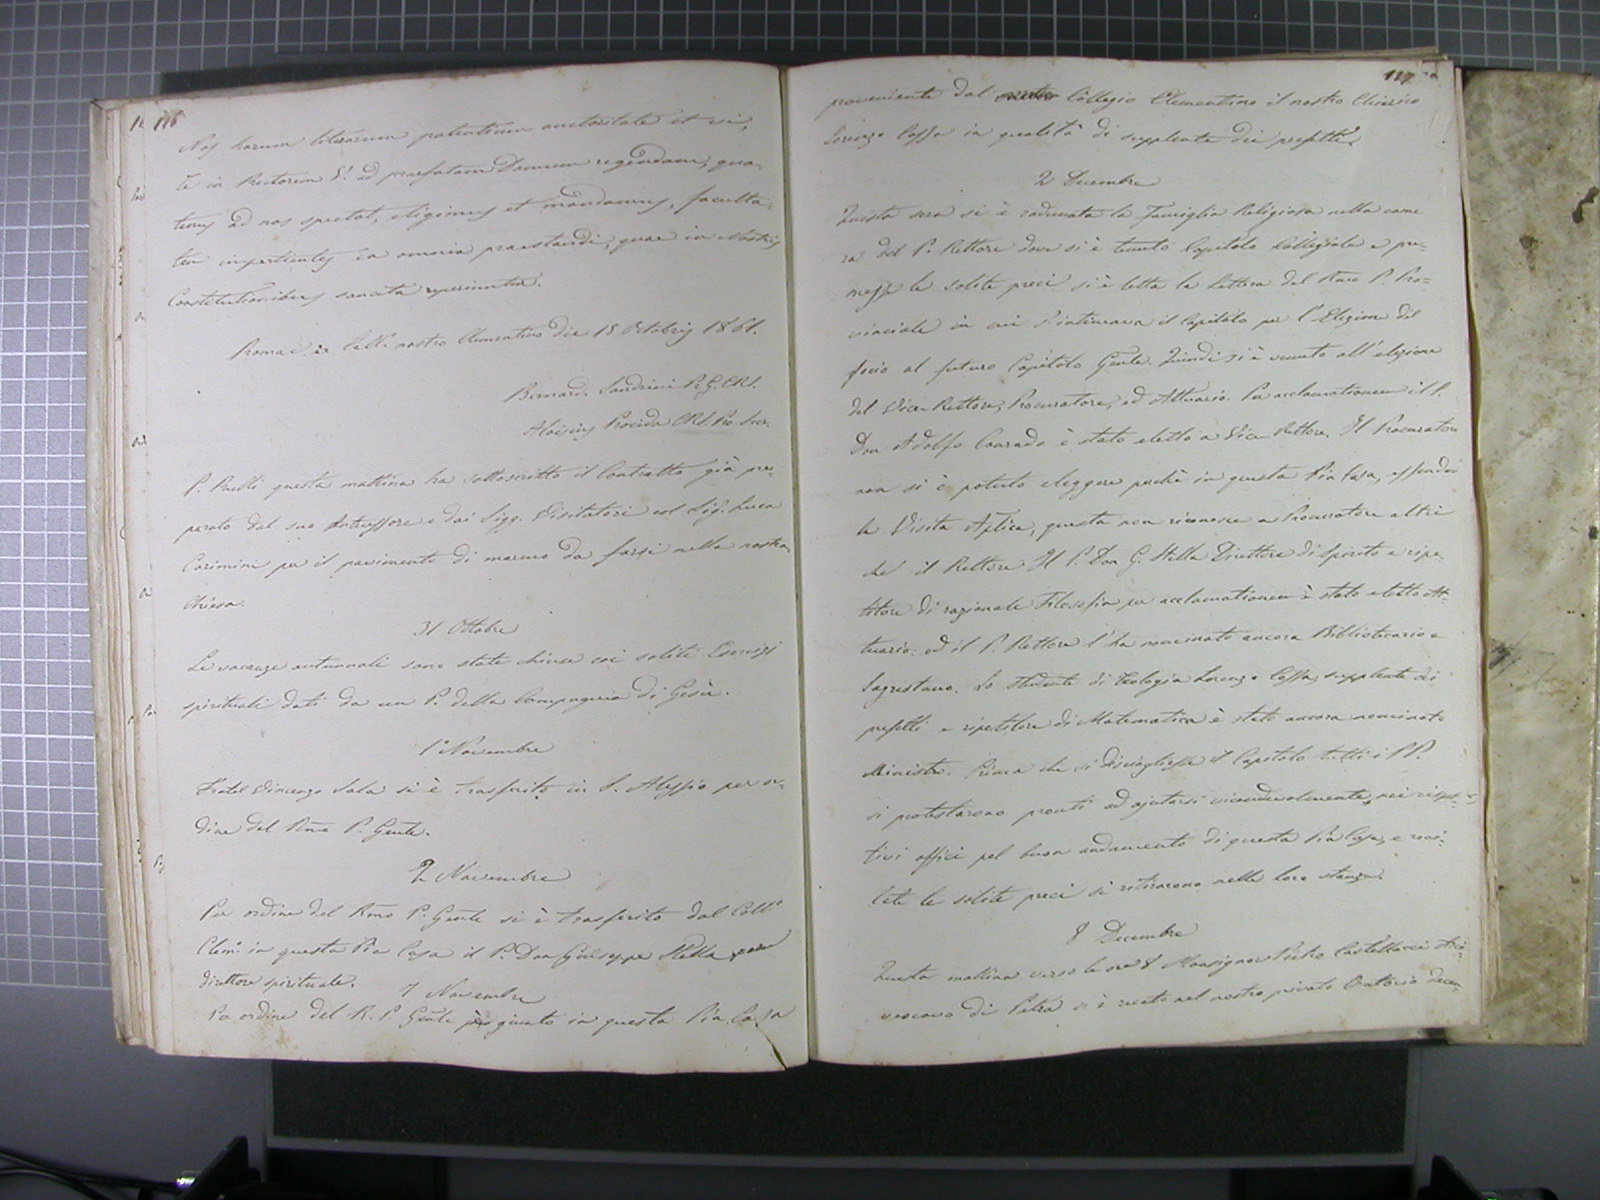 116
Nos harum literarum patentium auctoritate et vi,
te in Rectorem S.i ad praefatam Domum regendam, qua-
tenus ad nos spectat, eligimus et mandamus, faculta-
tem impertientes ea omnia praestandi, quae in Nostris
Constitutionibus sancita reperiuntur.
Romae in Coll.o nostro Clementino die 15 Octobris 1861.
Bernard. Sandrini P. G. CRS.
Aloisius Procida CRS. Pro Secr.
P. Puelli questa mattina ha sottoscritto il Contratto già pre-
parato dal suo Antecessore e dai Sigg. Visitatori col Sig. Luca
Carimini per il pavimento di marmo da farsi nella nostra
Chiesa.
31 Ottobre
Le vacanze autunnali sono state chiuse coi soliti Esercizj
spirituali dati da un P. della Compagnia di Gesù.
1° Novembre
Fratel Vincenzo Sala si è trasferito in S. Alessio per or-
dine del Rmo P. Gnle.
2 Novembre
Per ordine del Rmo P. Gnle si è trasferito dal Coll.o
Clem.o in questa Pia Casa il P. Don Giuseppe Stella
direttore spirituale.
7 Novembre
Per ordine del R. P. Gnle è giunto in questa Pia Casa
117
proveniente dal Collegio Clementino il nostro Chierico
Lorenzo Cossa in qualità di supplente dei prefetti.
2 Decembre
Questa sera si è radunata la Famiglia Religiosa nella came
ra del P. Rettore dove si è tenuto Capitolo Collegiale e pre-
messe le solite preci si è letta la lettera del P. Pro-
vinciale in cui s'intimava il Capitolo per l'Elezione del
Socio al futuro Capitolo Gnle. Quindi si è venuto all'elezione
del Vice-Rettore, Procuratore, ed Attuario. Per acclamationem il P.
Don Adolfo Conrado è stato eletto a Vice-Rettore. Il Procuratore
non si è potuto eleggere perchè in questa Pia Casa, essendovi
la Visita Aplica, questa non riconosce a Procuratore altri
che il Rettore. Il P. Don G. Stella Direttore di Spirito e ripe-
titore di razionale Filosofia per acclamationem è stato eletto At-
tuario: ed il P. Rettore l'ha nominato ancora Bibliotecario e
Sagristano. Lo studente di Teologia Lorenzo Cossa, supplente dei
prefetti e ripetitore di Matematica è stato ancora nominato
Ministro. Prima che si disciogliesse il Capitolo tutti i PP.
si protestarono pronti ad ajutarsi vicendevolmente nei rispet-
tivi offici pel buon andamento di questa Pia Casa, e reci-
tate le solite preci si ritirarono nelle loro stanze.
8 Decembre
Questa mattina verso le ore 8 Monsignor Pietro Castellacci Arci-
vescovo di Petra si è recato nel nostro privato Oratorio decen-